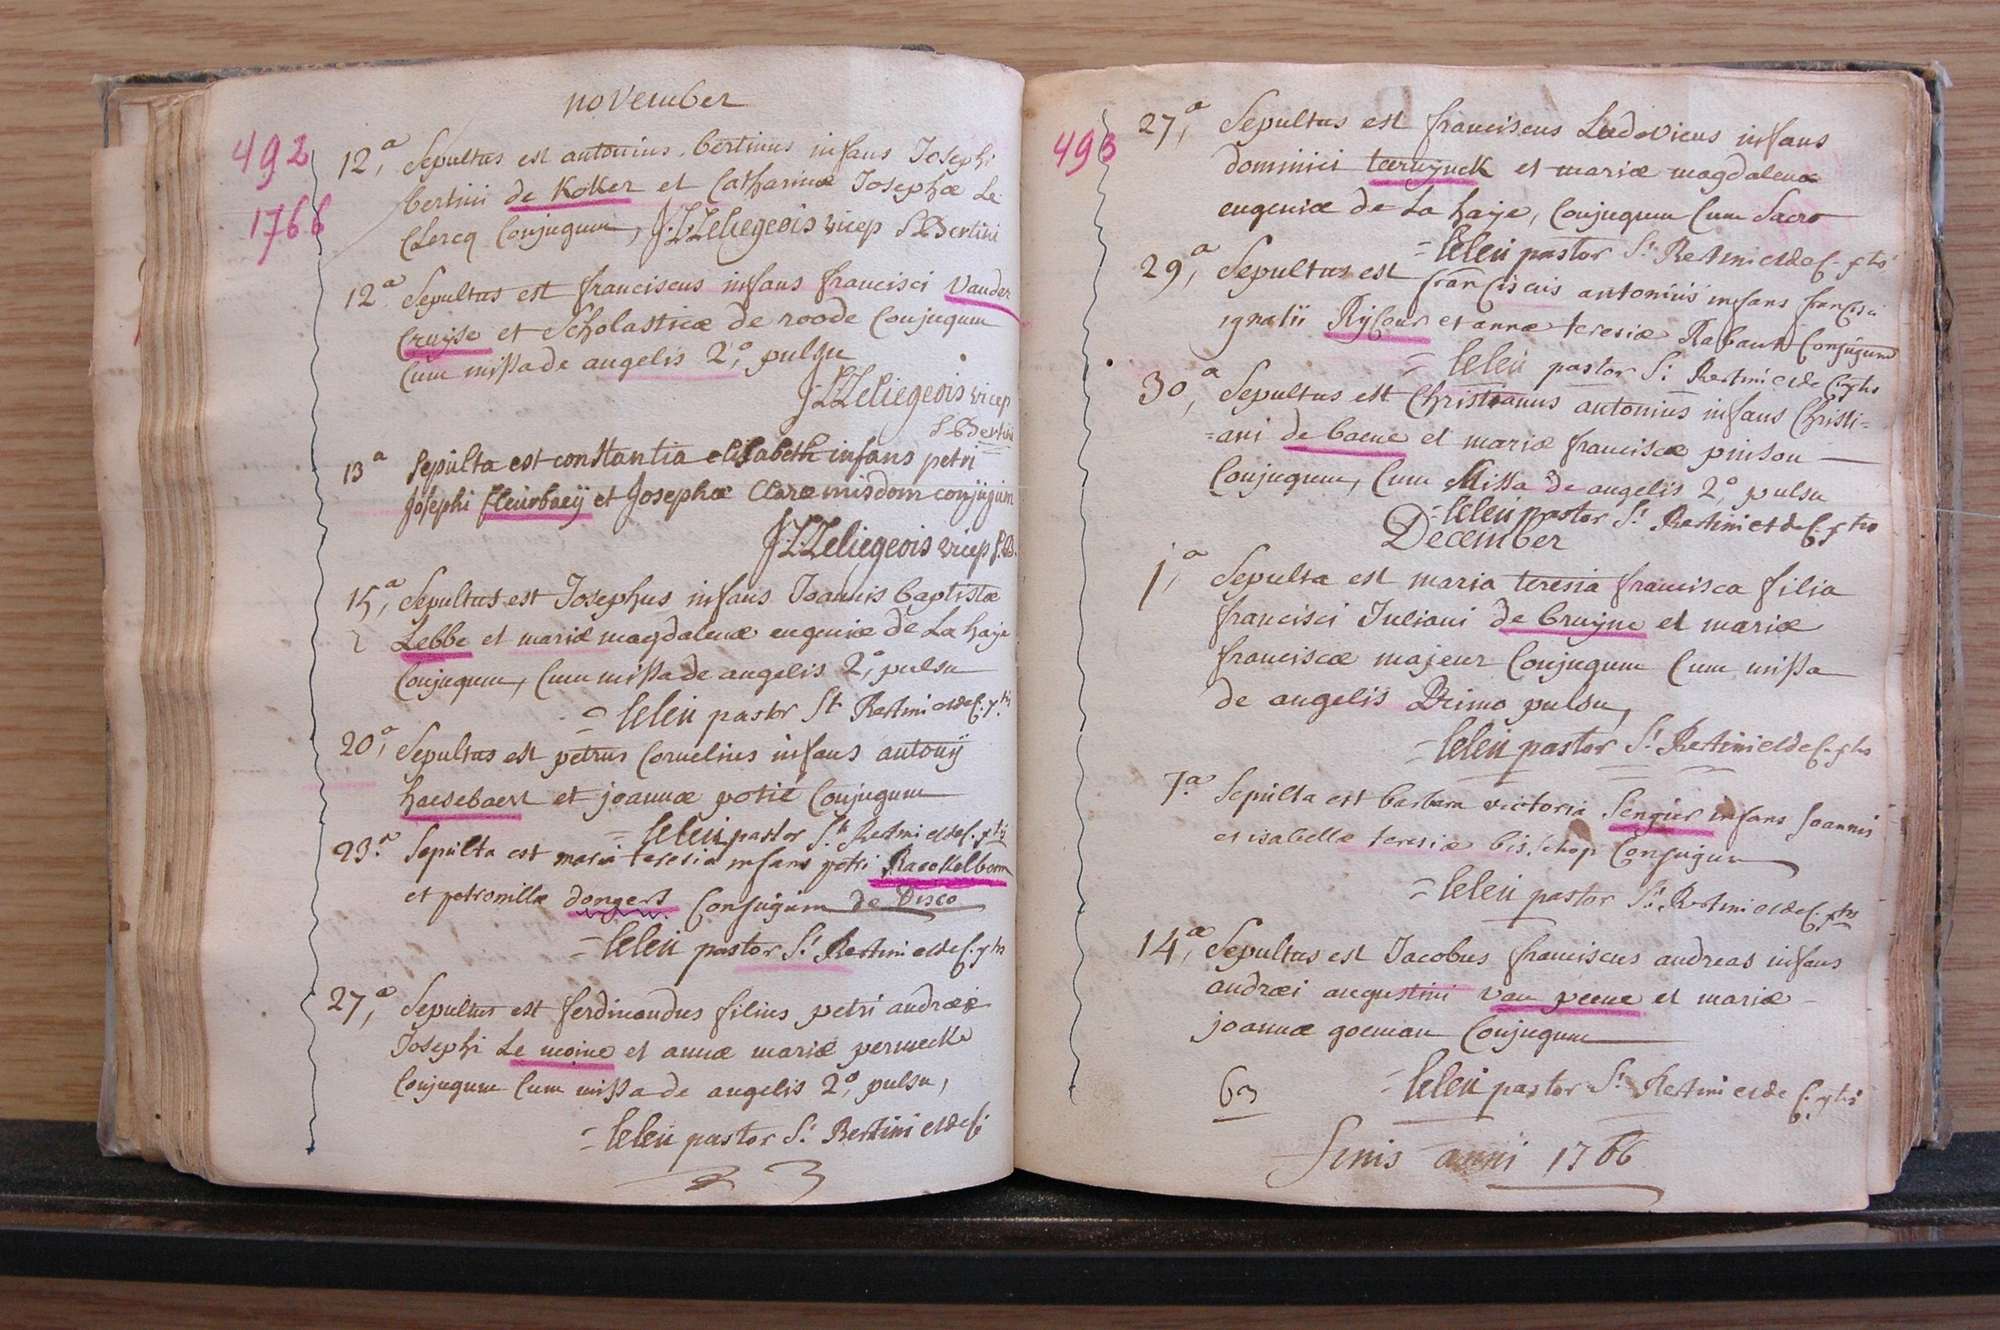 november
492
1766
12,a Sepultus est antonius bertinus infans Josephi
bertini de Koker et Catharinæ Josephæ Le
Clercq Conjugum, J:L:Leliegeois vicep S Bertini
12a Sepultus est franciscus infans francisci Vander
Cruyse et Scholasticæ de roode Conjugum
Cum missa de angelis 2,o pulsu
J:L:Leliegeois vicep
S Bertini
13a Sepulta est constantia elisabeth infans petri
Josephi fleurbaeij et Josephæ Claræ misdom conjugum
J:L:Leliegeois vicep S.B.
15,a Sepultus est Josephus infans Joannis baptistæ
Lebbe et mariæ magdalenæ eugeniæ de La haye
Conjugum, Cum missa de angelis 2,o pulsu
= leleu pastor St Bertini
20,a Sepultus est petrus Cornelius infans antonij
haesebaert et joannæ potié Conjugum
= leleu pastor St Bertini
23.a Sepulta est maria teresia infans petri Raeckelboom
et petronillæ dongers Conjugum de Disco
= leleu pastor St Bertini
27,a Sepultus est ferdinandus filius petri andreæ
Josephi Le moine et annæ mariæ permecke
Conjugum Cum missa de angelis 2,o pulsu,
= leleu pastor St Bertini
493
27,a Sepultus est franciscus Ludovicus infans
dominici teruynck et mariæ magdalenæ
eugeniæ de La haije, Conjugum Cum Sacro
= leleu pastor St Bertini
29,a Sepultus est franciscus antonius infans francisci
ignatii Rycour et annæ teresiæ Rabaut Conjugum
= leleu pastor St Bertini
30,a Sepultus est Christianus antonius infans Christi=
=ani de baene et mariæ franciscæ pinson
Conjugum, Cum Missa de angelis 2,o pulsu
= leleu pastor St Bertini
December
1,a Sepulta est maria teresia francisca filia
francisci Juliani de bruyne et mariæ
franciscæ majeur Conjugum Cum missa
de angelis Primo pulsu,
= leleu pastor St Bertini
7.a Sepulta est barbara victoria Sengier infans Joannis
et isabellæ teresiæ bisschop Conjugum
= leleu pastor St Bertini
14,a Sepultus est Jacobus franciscus andreas infans
andræi augustini van peene et mariæ
joannæ goeman Conjugum
= leleu pastor St Bertini
63
finis anni 1766